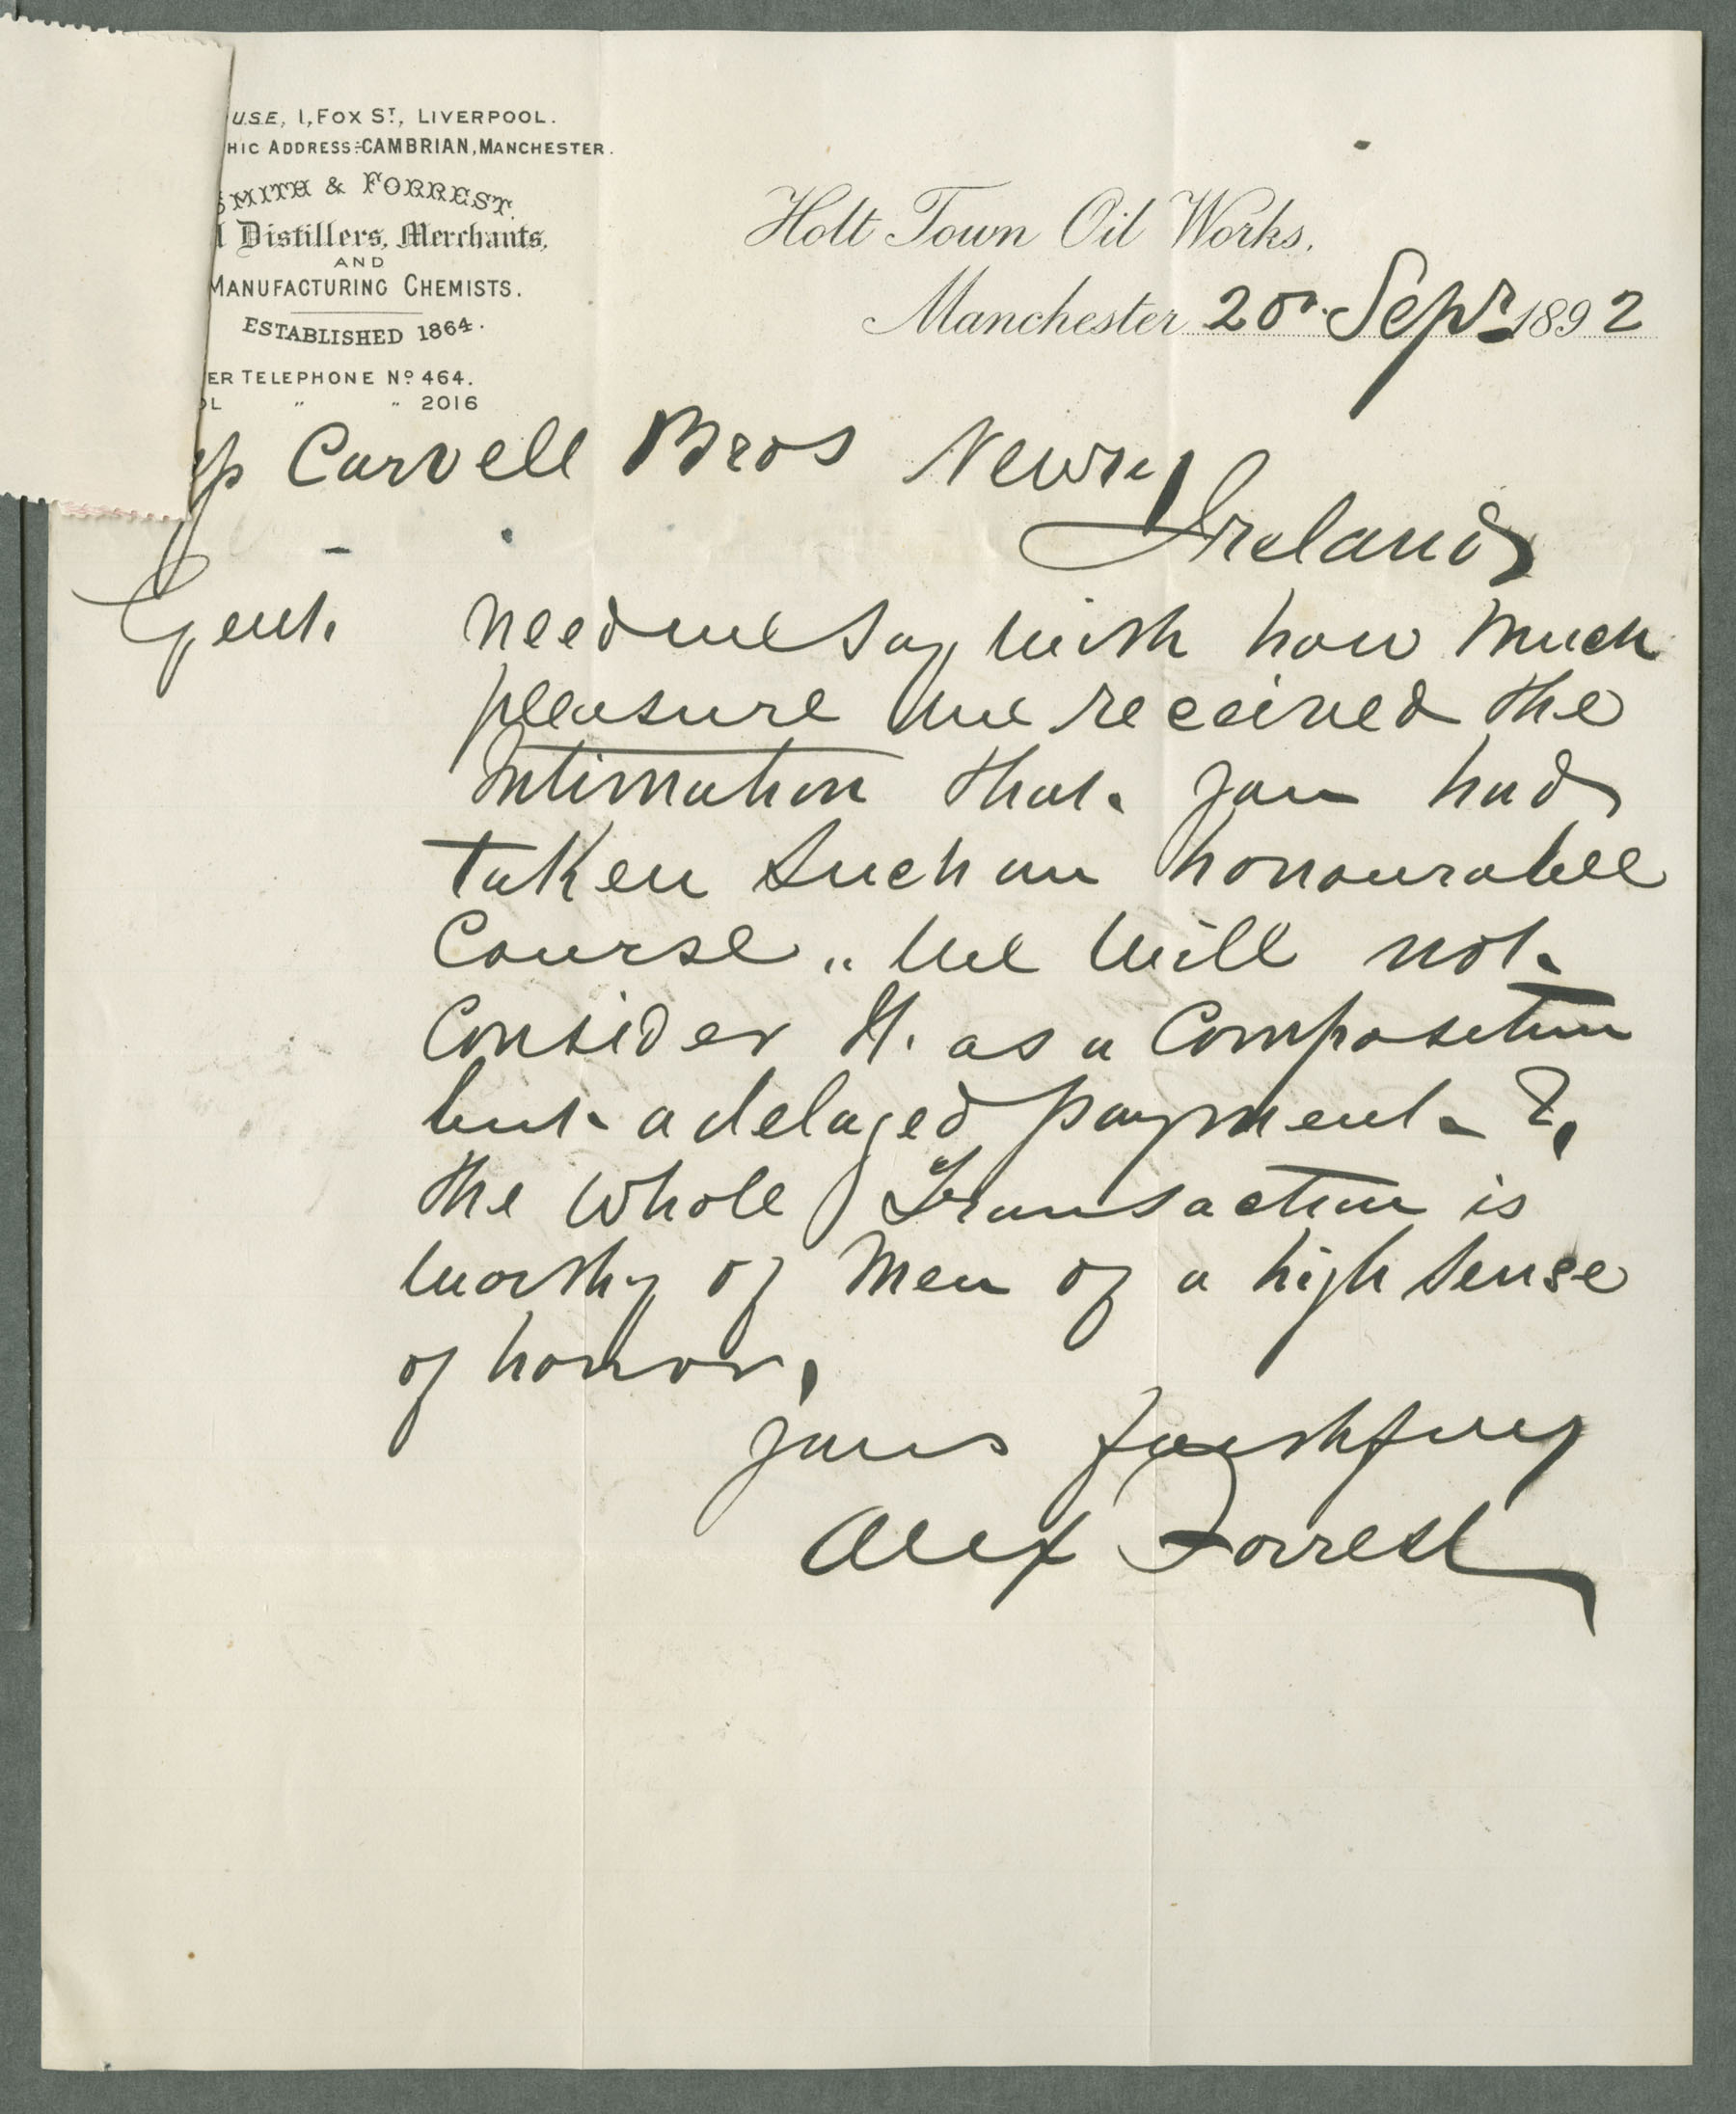 USE, 1, FOX ST, LIVERPOOL.
HIC ADDRESS:-CAMBRIAN, MANCHESTER.
SMITH & FORREST.
Distillers, Merchants,
AND
MANUFACTURING CHEMISTS.
ESTABLISHED 1864.
ER TELEPHONE No 464.
OL " " 2016
Holt Town Oil Works.
Manchester 20 Sepr 1892
Carvell Bros Newry
Ireland
Gent. Need we say with how much
pleasure we received the
Intimation that you had
taken such an honourable
Course,, We will not
Consider It. as a Composition
but a delayed payment &,
the whole Transaction is
worthy of Men of a high sense
of honor,
yours faithfully
Alex Forrest